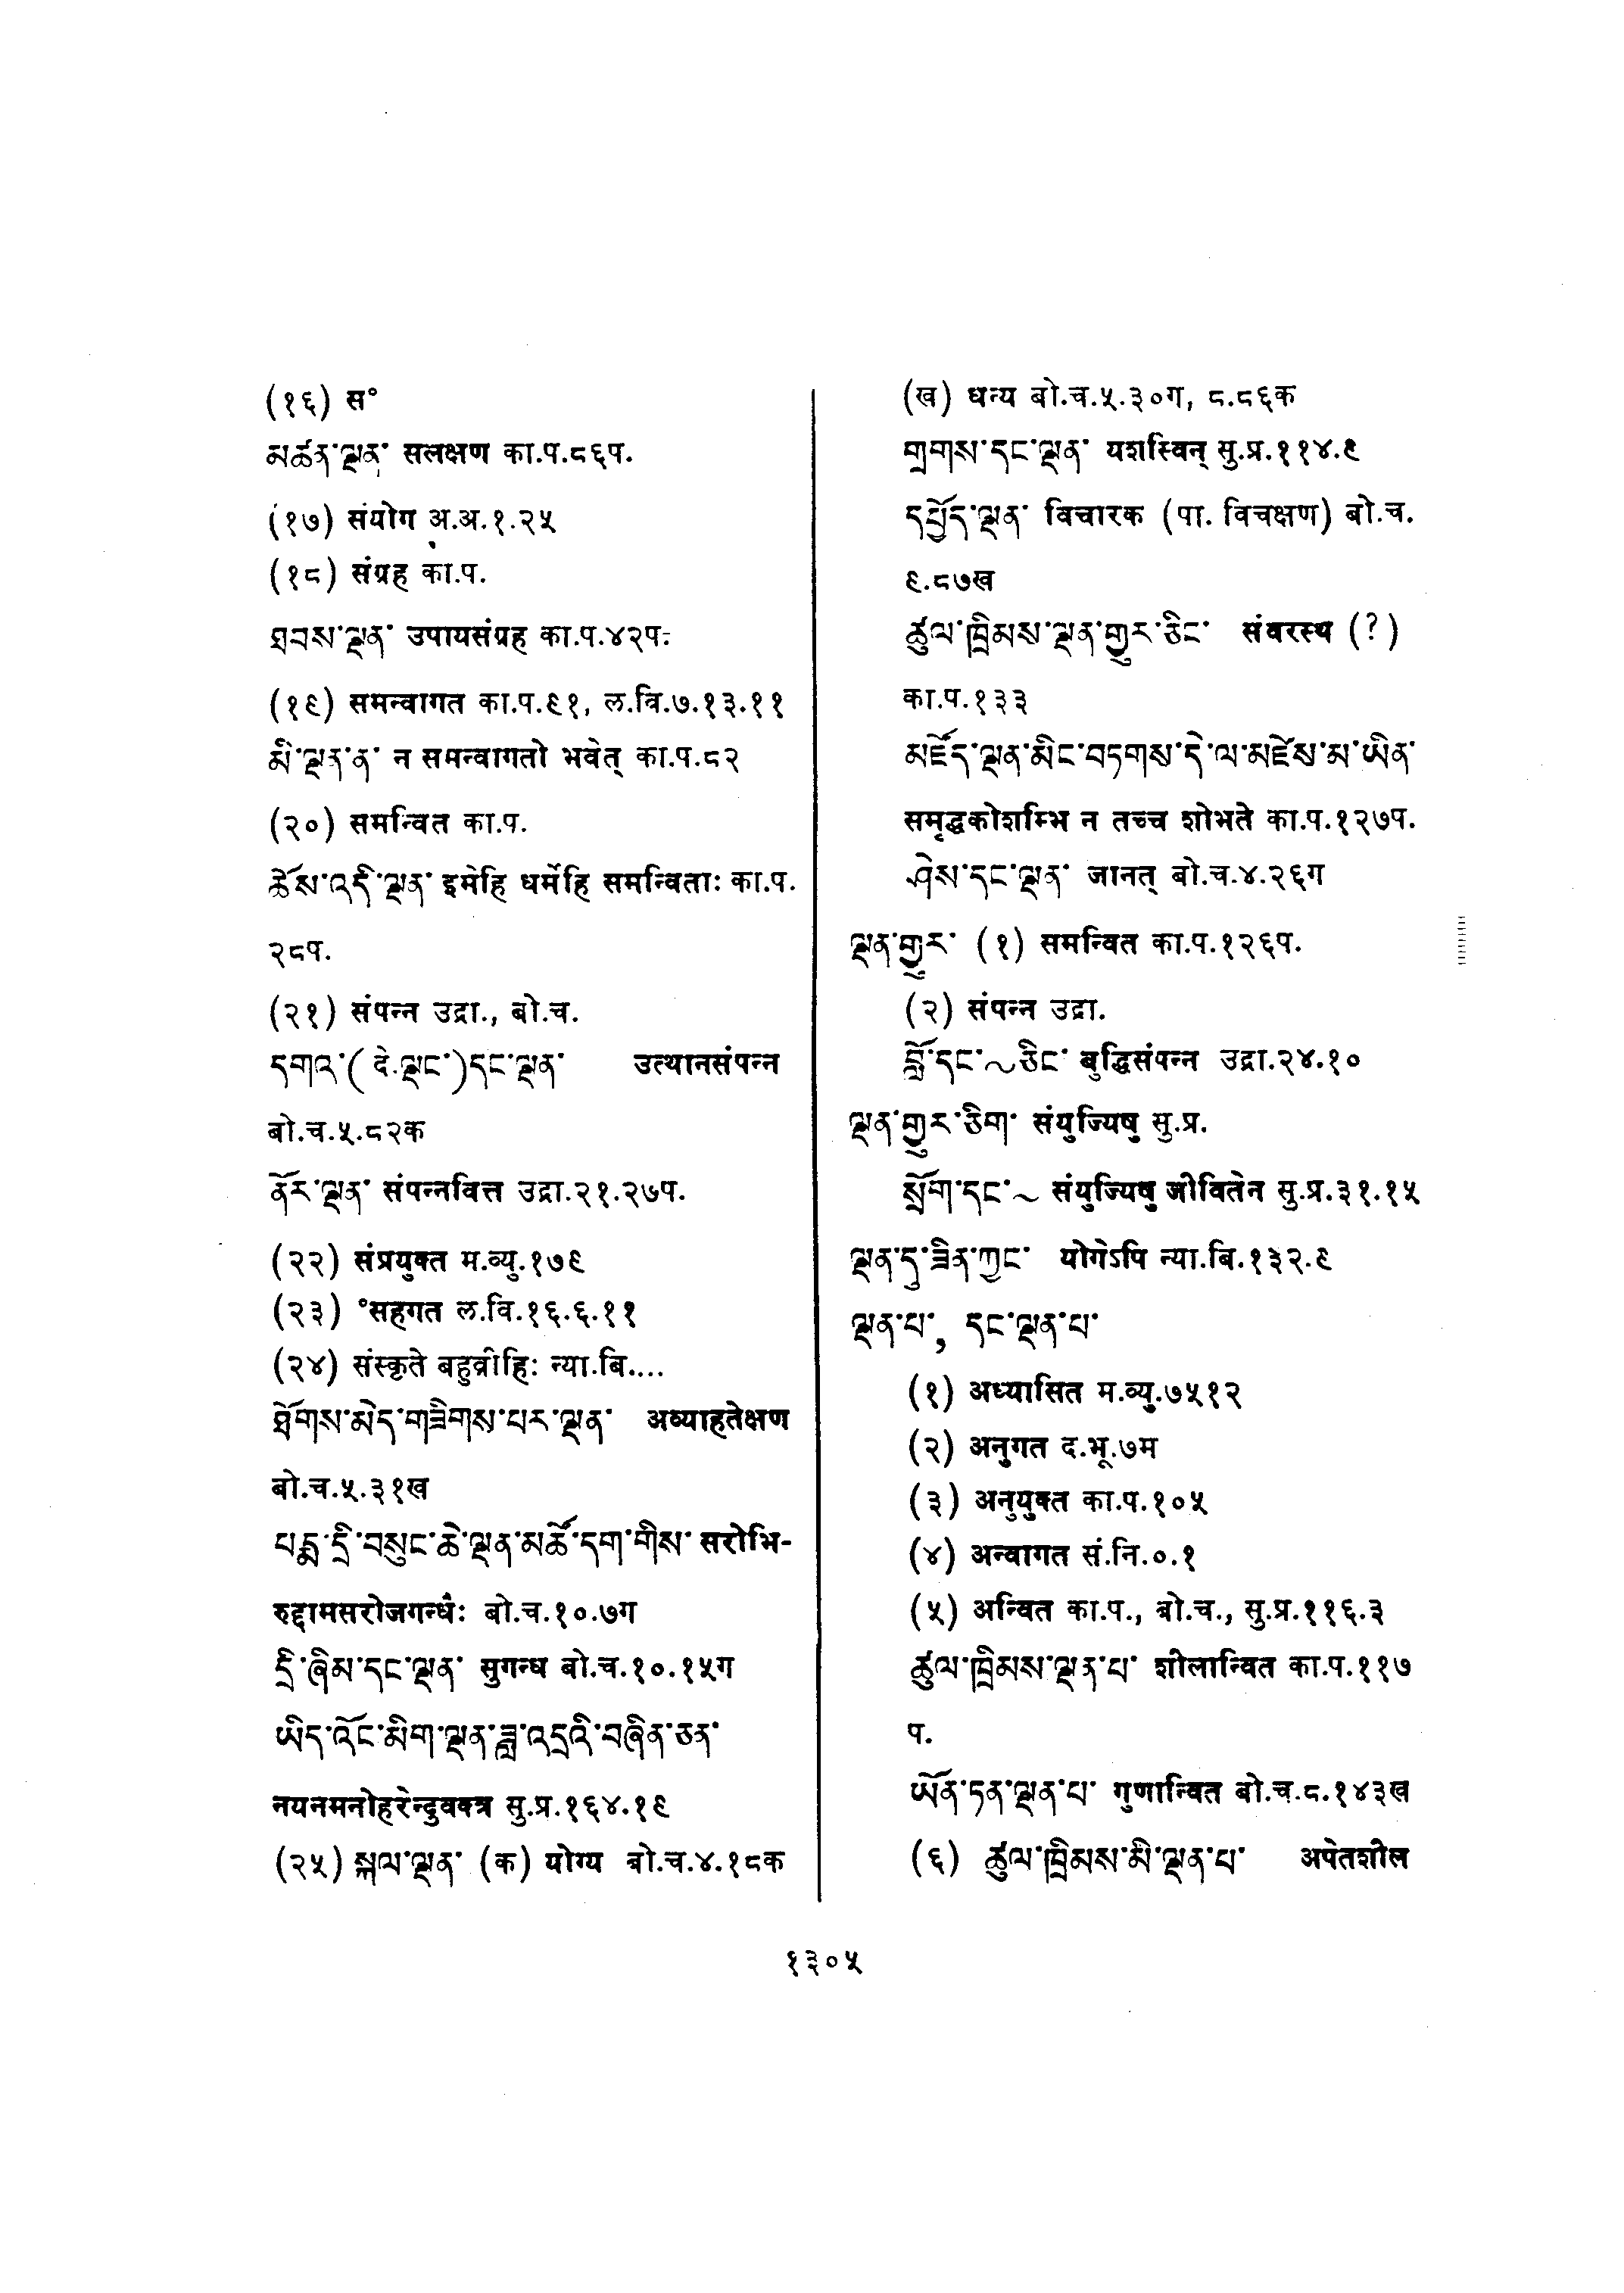 (१६) स°
མཚན་ལྡན་ सलक्षण का.प.८६प.
(१७) संयोग अ.अ.१.२५
(१८) संग्रह का.प.
ཐབས་ལྡན་ उपायसंग्रह का.प.४२प.
(१९) समन्वागत का.प.९१, ल.वि.७.१३.११
མི་ལྡན་ན་ न समन्वागतो भवेत् का.प.८२
(२०) समन्वित का.प.
ཆོས་འདི་ལྡན་ इमेहि धर्मेहि समन्विताः का.प.
२८प.
(२१) संपन्न उद्रा., बो.च.
དགའ་( दे.ལྡང་)དང་ལྡན་ उत्थानसंपन्न
बो.च.५.८२क
ནོར་ལྡན་ संपन्नवित्त उद्रा.२१.२७प.
(२२) संप्रयुक्त म.व्यु.१७९
(२३) °सहगत ल.वि.१६.६.११
(२४) संस्कृते बहुव्रीहिः न्या.बि....
ཐོགས་མེད་གཟིགས་པར་ལྡན་ अव्याहतेक्षण
बो.च.५.३१ख
པདྨ་དྲི་བསུང་ཆེ་ལྡན་མཚོ་དག་གིས་ सरोभि-
रुद्दामसरोजगन्धंः बो.च.१०.७ग
དྲི་ཞིམ་དང་ལྡན་ सुगन्ध बो.च.१०.१५ग
ཡིད་འོང་མིག་ལྡན་ཟླ་འདྲའི་བཞིན་ཅན་
नयनमनोहरेन्दुवक्त्र सु.प्र.१६४.१९
(२५) སྐལ་ལྡན་ (क) योग्य बो.च.४.१८क
(ख) धन्य बो.च.५.३०ग, ८.८६क
གྲགས་དང་ལྡན་ यशस्विन् सु.प्र.११४.९
དཔྱོད་ལྡན་ विचारक (पा. विचक्षण) बो.च.
९.८७ख
ཚུལ་ཁྲིམས་ལྡན་གྱུར་ཅིང་ संवरस्थ (?)
का.प.१३३
མཛོད་ལྡན་མིང་བཏགས་དེ་ལ་མཛེས་མ་ཡིན་
समृद्धकोशम्भि न तच्च शोभते का.प.१२७प.
ཤེས་དང་ལྡན་ जानत् बो.च.४.२६ग
ལྡན་གྱུར་ (१) समन्वित का.प.१२६प.
(२) संपन्न उद्रा.
བློ་དང་~ཅིང་ बुद्धिसंपन्न उद्रा.२४.१०
ལྡན་གྱུར་ཅིག་ संयुज्यिषु सु.प्र.
སྲོག་དང་~ संयुज्यिषु जीवितेन सु.प्र.३१.१५
ལྡན་དུ་ཟིན་ཀྱང་ योगेऽपि न्या.बि.१३२.९
ལྡན་པ་, དང་ལྡན་པ་
(१) अध्यासित म.व्यु.७५१२
(२) अनुगत द.भू.७म
(३) अनुयुक्त का.प.१०५
(४) अन्वागत सं.नि.०.१
(५) अन्वित का.प., बो.च., सु.प्र.११६.३
ཚུལ་ཁྲིམས་ལྡན་པ་ शीलान्वित का.प.११७
प.
ཡོན་ཏན་ལྡན་པ་ गुणान्वित बो.च.८.१४३ख
(६) ཚུལ་ཁྲིམས་མི་ལྡན་པ་ अपेतशील
१३०५